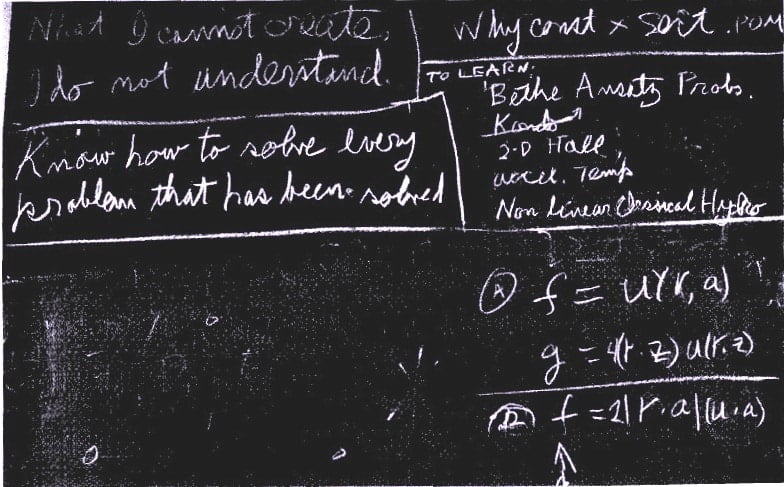 What I cannot create,
I do not understand.
Know how to solve every
problem that has been solved
Why const × sort . POM
TO LEARN:
Bethe Ansatz Probs.
Kondo
2-D Hall
accel. Temp
Non Linear Classical Hydro
Ⓐ f = u(r, a)
g = 4(r·z) u(r,z)
f = 2|r·a|(u·a)